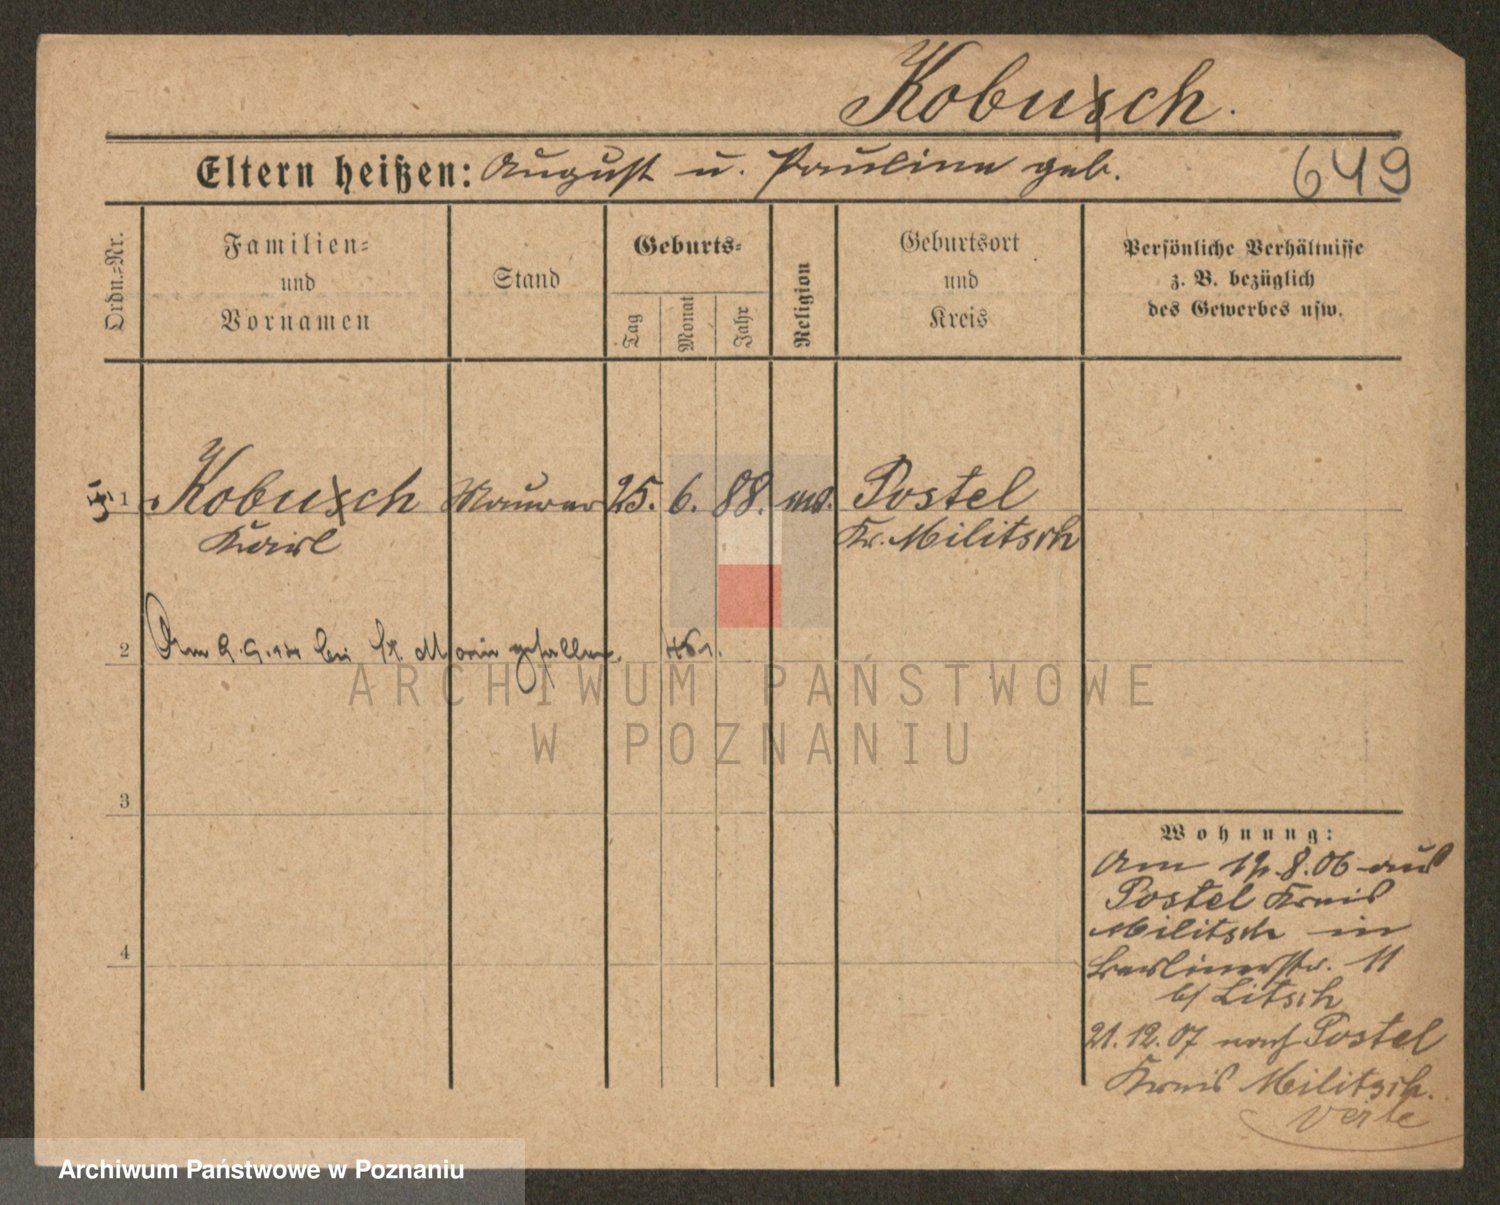 Kobusch.
Eltern heißen: August u. Pauline geb.
649
Ordn.-Nr.
Familien-
und
Vornamen
Stand
Geburts-
Tag
Monat
Jahr
Religion
Geburtsort
und
Kreis
Persönliche Verhältnisse
z. B. bezüglich
des Gewerbes usw.
1 Kobusch Maurer 25. 6. 88. Postel
Karl Kr. Militsch
2 Am 9. 9. bei gefallen.
ARCHIWUM PAŃSTWOWE
W POZNANIU
3
4
Wohnung:
Am 8.06 aus
Postel Kreis
Militsch in
Berlinerstr. 11
b/ Litsch
21.12.07 nach Postel
Kreis Militsch.
verte
Archiwum Państwowe w Poznaniu